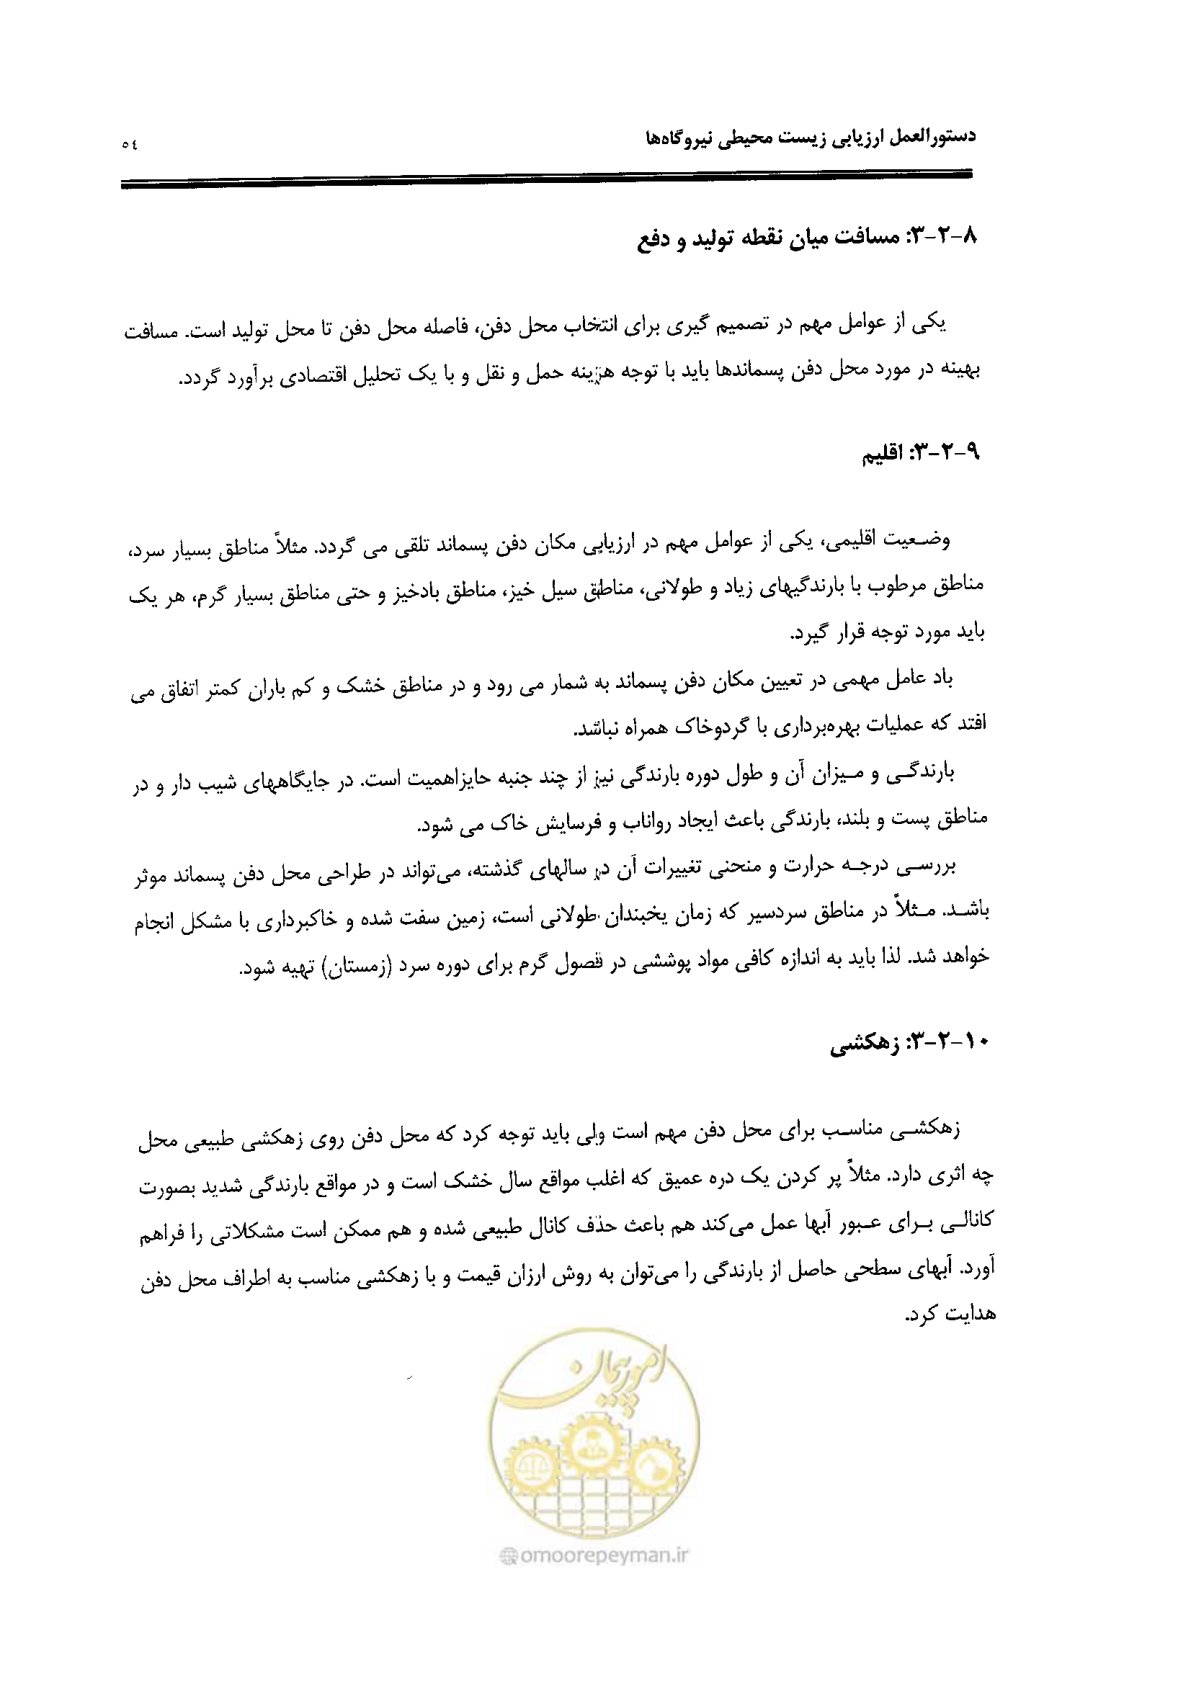 دستورالعمل ارزیابی زیست محیطی نیروگاه‌ها
٥٤
۳-۲-۸: مسافت میان نقطه تولید و دفع
یکی از عوامل مهم در تصمیم گیری برای انتخاب محل دفن، فاصله محل دفن تا محل تولید است. مسافت
بهینه در مورد محل دفن پسماندها باید با توجه هزینه حمل و نقل و با یک تحلیل اقتصادی برآورد گردد.
۳-۲-۹: اقلیم
وضعیت اقلیمی، یکی از عوامل مهم در ارزیابی مکان دفن پسماند تلقی می گردد. مثلاً مناطق بسیار سرد،
مناطق مرطوب با بارندگیهای زیاد و طولانی، مناطق سیل خیز، مناطق بادخیز و حتی مناطق بسیار گرم، هر یک
باید مورد توجه قرار گیرد.
باد عامل مهمی در تعیین مکان دفن پسماند به شمار می رود و در مناطق خشک و کم باران کمتر اتفاق می
افتد که عملیات بهره‌برداری با گردوخاک همراه نباشد.
بارندگی و میزان آن و طول دوره بارندگی نیز از چند جنبه حایزاهمیت است. در جایگاههای شیب دار و در
مناطق پست و بلند، بارندگی باعث ایجاد رواناب و فرسایش خاک می شود.
بررسی درجه حرارت و منحنی تغییرات آن در سالهای گذشته، می‌تواند در طراحی محل دفن پسماند موثر
باشد. مثلاً در مناطق سردسیر که زمان یخبندان طولانی است، زمین سفت شده و خاکبرداری با مشکل انجام
خواهد شد. لذا باید به اندازه کافی مواد پوششی در فصول گرم برای دوره سرد (زمستان) تهیه شود.
۳-۲-۱۰: زهکشی
زهکشی مناسب برای محل دفن مهم است ولی باید توجه کرد که محل دفن روی زهکشی طبیعی محل
چه اثری دارد. مثلاً پر کردن یک دره عمیق که اغلب مواقع سال خشک است و در مواقع بارندگی شدید بصورت
کانالی برای عبور آبها عمل می‌کند هم باعث حذف کانال طبیعی شده و هم ممکن است مشکلاتی را فراهم
آورد. آبهای سطحی حاصل از بارندگی را می‌توان به روش ارزان قیمت و با زهکشی مناسب به اطراف محل دفن
هدایت کرد.
امور پیمان
omoorepeyman.ir